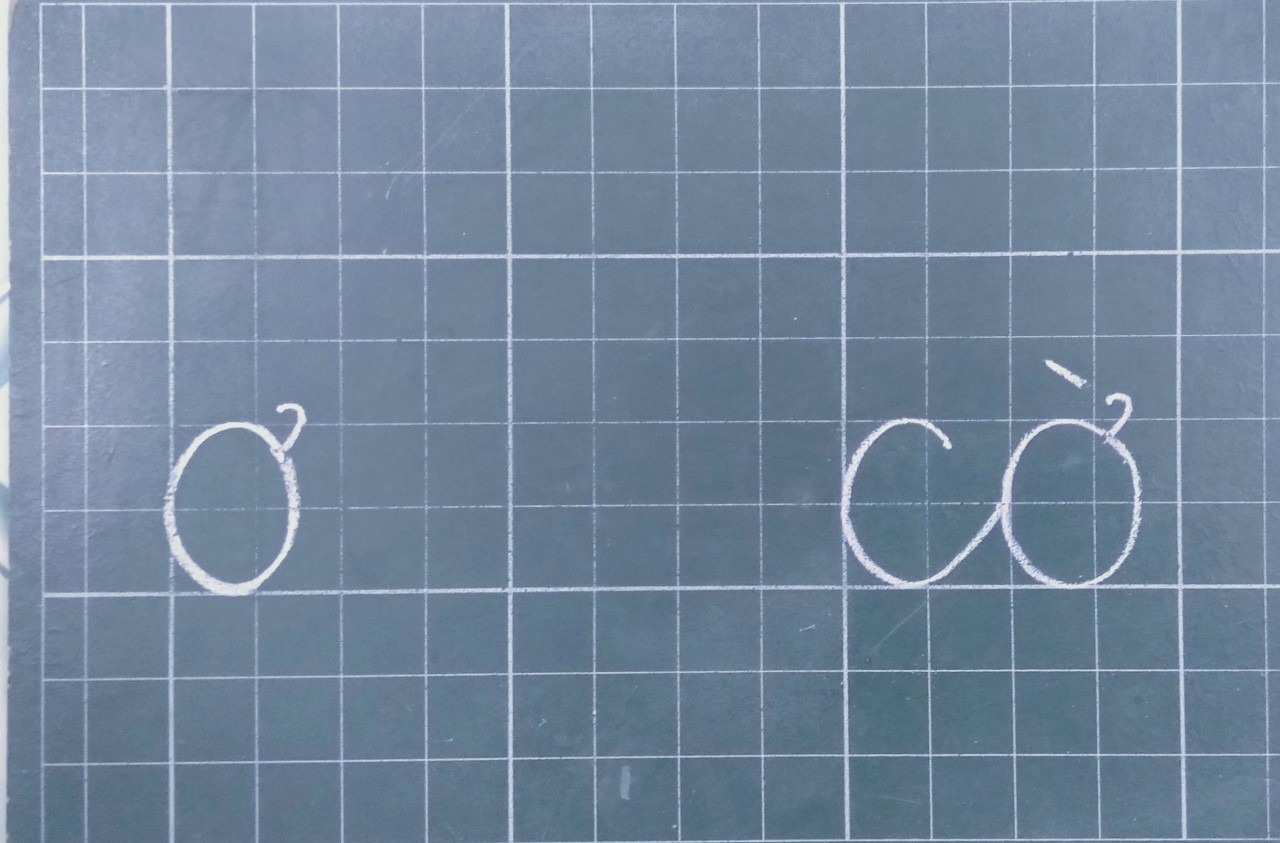 ơ cờ